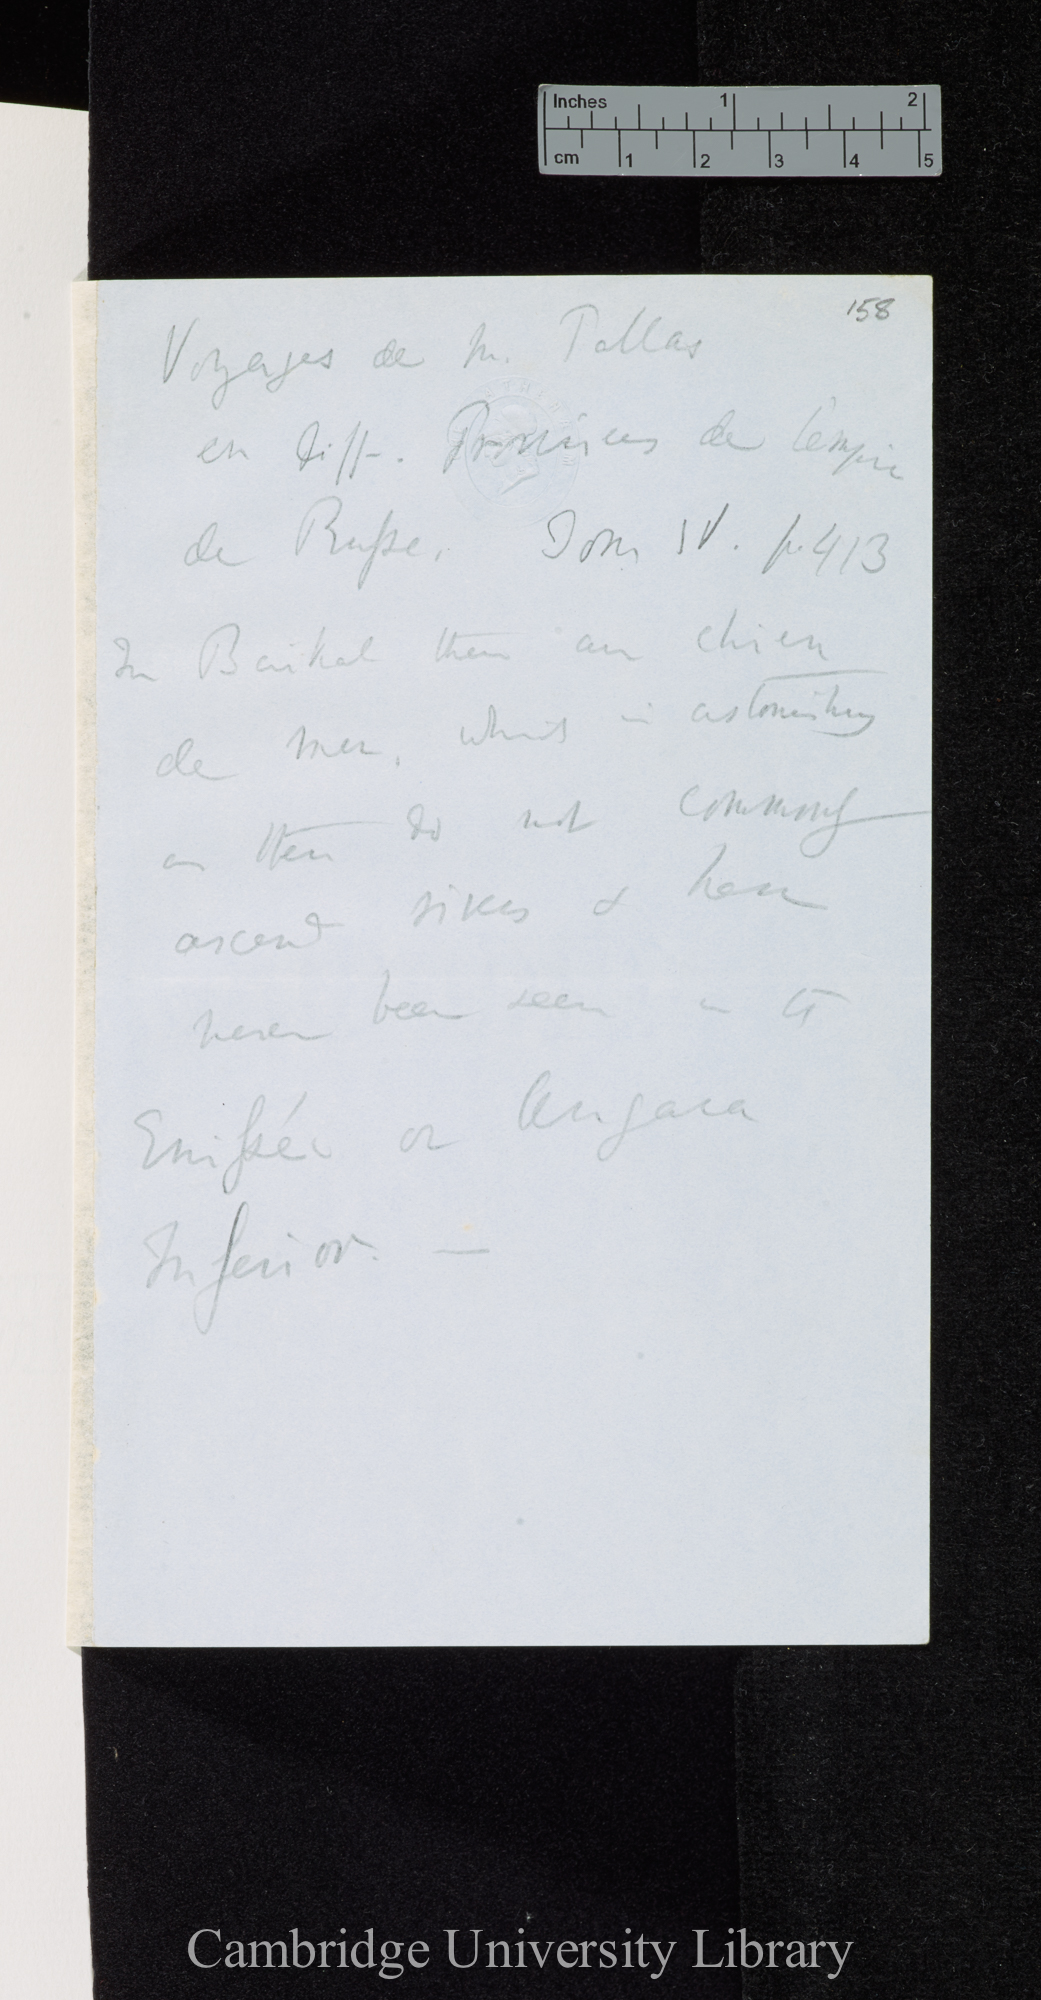 Inches 1 2
cm 1 2 3 4 5
158
Voyages de M. Pallas
en diff. Provinces de l'empire
de Russe. Tom IV. p. 413
In Baikal there are chien
de mer, which is astonishing
as these do not commonly
ascend rivers & have
never been seen in the
Enissée or Angara
Inferior. —
Cambridge University Library